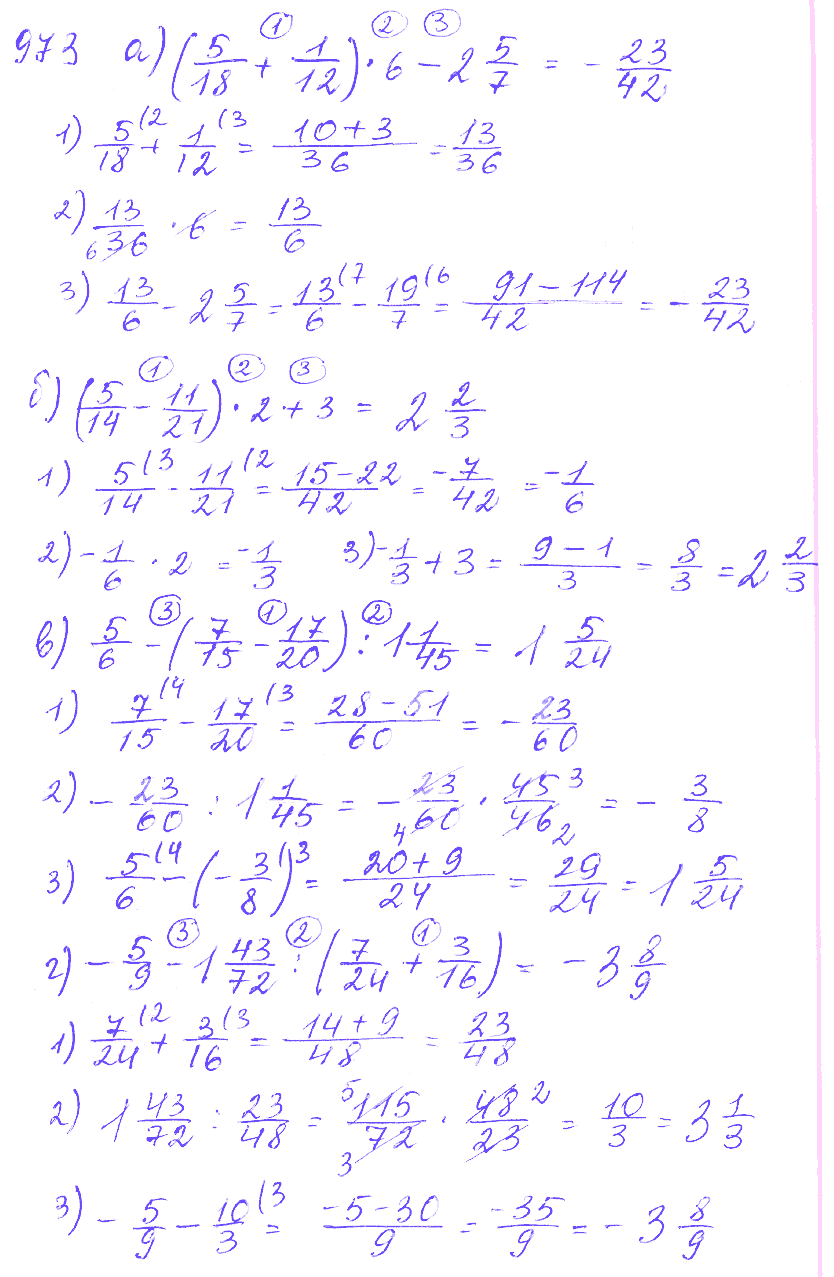 973 а) (5/18 + 1/12) · 6 − 2 5/7 = − 23/42
1) 5/18 (2 + 1/12 (3 = (10+3)/36 = 13/36
2) 13/36 · 6 = 13/6
3) 13/6 − 2 5/7 = 13/6 (7 − 19/7 (6 = (91−114)/42 = − 23/42
б) (5/14 − 11/21) · 2 + 3 = 2 2/3
1) 5/14 (3 − 11/21 (2 = (15−22)/42 = −7/42 = −1/6
2) −1/6 · 2 = −1/3 3) −1/3 + 3 = (9−1)/3 = 8/3 = 2 2/3
в) 5/6 − (7/15 − 17/20) : 1 1/45 = 1 5/24
1) 7/15 (4 − 17/20 (3 = (28−51)/60 = − 23/60
2) − 23/60 : 1 1/45 = − 23/60 · 45/46 = − 3/8
3) 5/6 (4 − (− 3/8) (3 = (20+9)/24 = 29/24 = 1 5/24
г) − 5/9 − 1 43/72 : (7/24 + 3/16) = − 3 8/9
1) 7/24 (2 + 3/16 (3 = (14+9)/48 = 23/48
2) 1 43/72 : 23/48 = 115/72 · 48/23 = 10/3 = 3 1/3
3) − 5/9 − 10/3 (3 = (−5−30)/9 = −35/9 = − 3 8/9